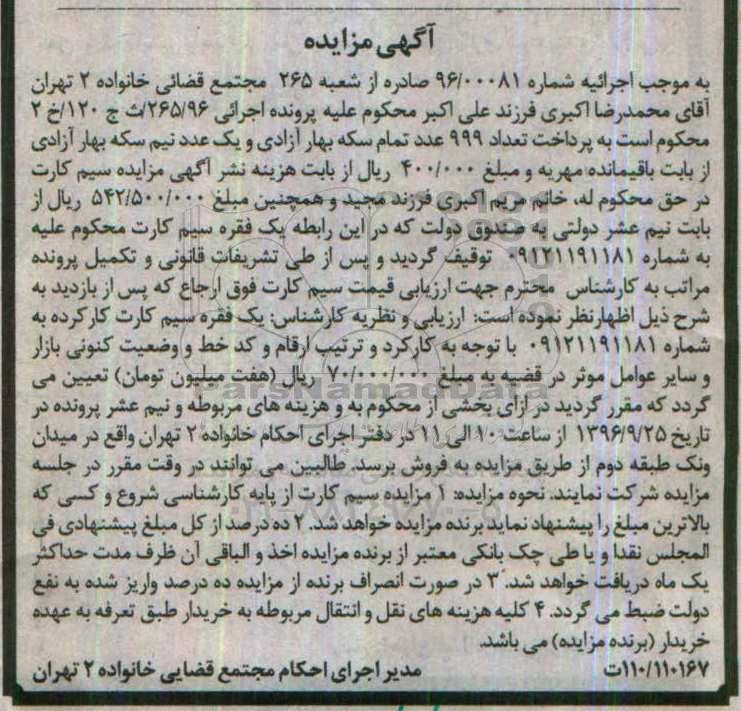 آگهی مزایده
به موجب اجرائیه شماره ۹۶/۰۰۰۸۱ صادره از شعبه ۲۶۵ مجتمع قضائی خانواده ۲ تهران
آقای محمدرضا اکبری فرزند علی اکبر محکوم علیه پرونده اجرائی ۲۶۵/۹۶/ث ج ۱۲۰/خ ۲
محکوم است به پرداخت تعداد ۹۹۹ عدد تمام سکه بهار آزادی و یک عدد نیم سکه بهار آزادی
از بابت باقیمانده مهریه و مبلغ ۴۰۰/۰۰۰ ریال از بابت هزینه نشر آگهی مزایده سیم کارت
در حق محکوم له، خانم مریم اکبری فرزند مجید و همچنین مبلغ ۵۴۲/۵۰۰/۰۰۰ ریال از
بابت نیم عشر دولتی به صندوق دولت که در این رابطه یک فقره سیم کارت محکوم علیه
به شماره ۰۹۱۲۱۱۹۱۱۸۱ توقیف گردید و پس از طی تشریفات قانونی و تکمیل پرونده
مراتب به کارشناس محترم جهت ارزیابی قیمت سیم کارت فوق ارجاع که پس از بازدید به
شرح ذیل اظهارنظر نموده است: ارزیابی و نظریه کارشناس: یک فقره سیم کارت کارکرده به
شماره ۰۹۱۲۱۱۹۱۱۸۱ با توجه به کارکرد و ترتیب ارقام و کد خط و وضعیت کنونی بازار
و سایر عوامل موثر در قضیه به مبلغ ۷۰/۰۰۰/۰۰۰ ریال (هفت میلیون تومان) تعیین می
گردد که مقرر گردید در ازای بخشی از محکوم به و هزینه های مربوطه و نیم عشر پرونده در
تاریخ ۱۳۹۶/۹/۲۵ از ساعت ۱۰ الی ۱۱ در دفتر اجرای احکام خانواده ۲ تهران واقع در میدان
ونک طبقه دوم از طریق مزایده به فروش برسد. طالبین می توانند در وقت مقرر در جلسه
مزایده شرکت نمایند. نحوه مزایده: ۱ مزایده سیم کارت از پایه کارشناسی شروع و کسی که
بالاترین مبلغ را پیشنهاد نماید برنده مزایده خواهد شد. ۲ ده درصد از کل مبلغ پیشنهادی فی
المجلس نقدا و یا طی چک بانکی معتبر از برنده مزایده اخذ و الباقی آن ظرف مدت حداکثر
یک ماه دریافت خواهد شد. ۳ در صورت انصراف برنده از مزایده ده درصد واریز شده به نفع
دولت ضبط می گردد. ۴ کلیه هزینه های نقل و انتقال مربوطه به خریدار طبق تعرفه به عهده
خریدار (برنده مزایده) می باشد.
۱۱۰/۱۱۰۱۶۷ت مدیر اجرای احکام مجتمع قضایی خانواده ۲ تهران
ParsNamadData